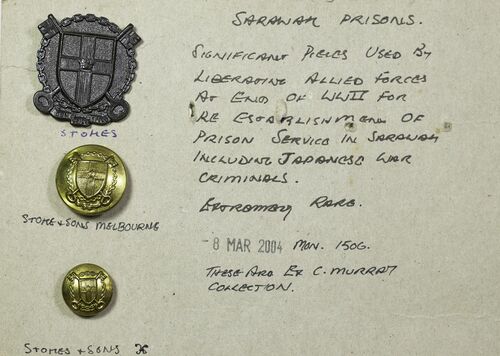 SARAWAK PRISONS.
SIGNIFICANT PIECES USED BY
LIBERATING ALLIED FORCES
AT END OF WWII FOR
RE ESTABLISHMENT OF
PRISON SERVICE IN SARAWAK
INCLUDING JAPANESE WAR
CRIMINALS.
EXTREMELY RARE.
-8 MAR 2004 MON. 150G.
THESE ARE EX C. MURRAY
COLLECTION.
STOKES
STOKE & SONS MELBOURNE
STOKES & SONS